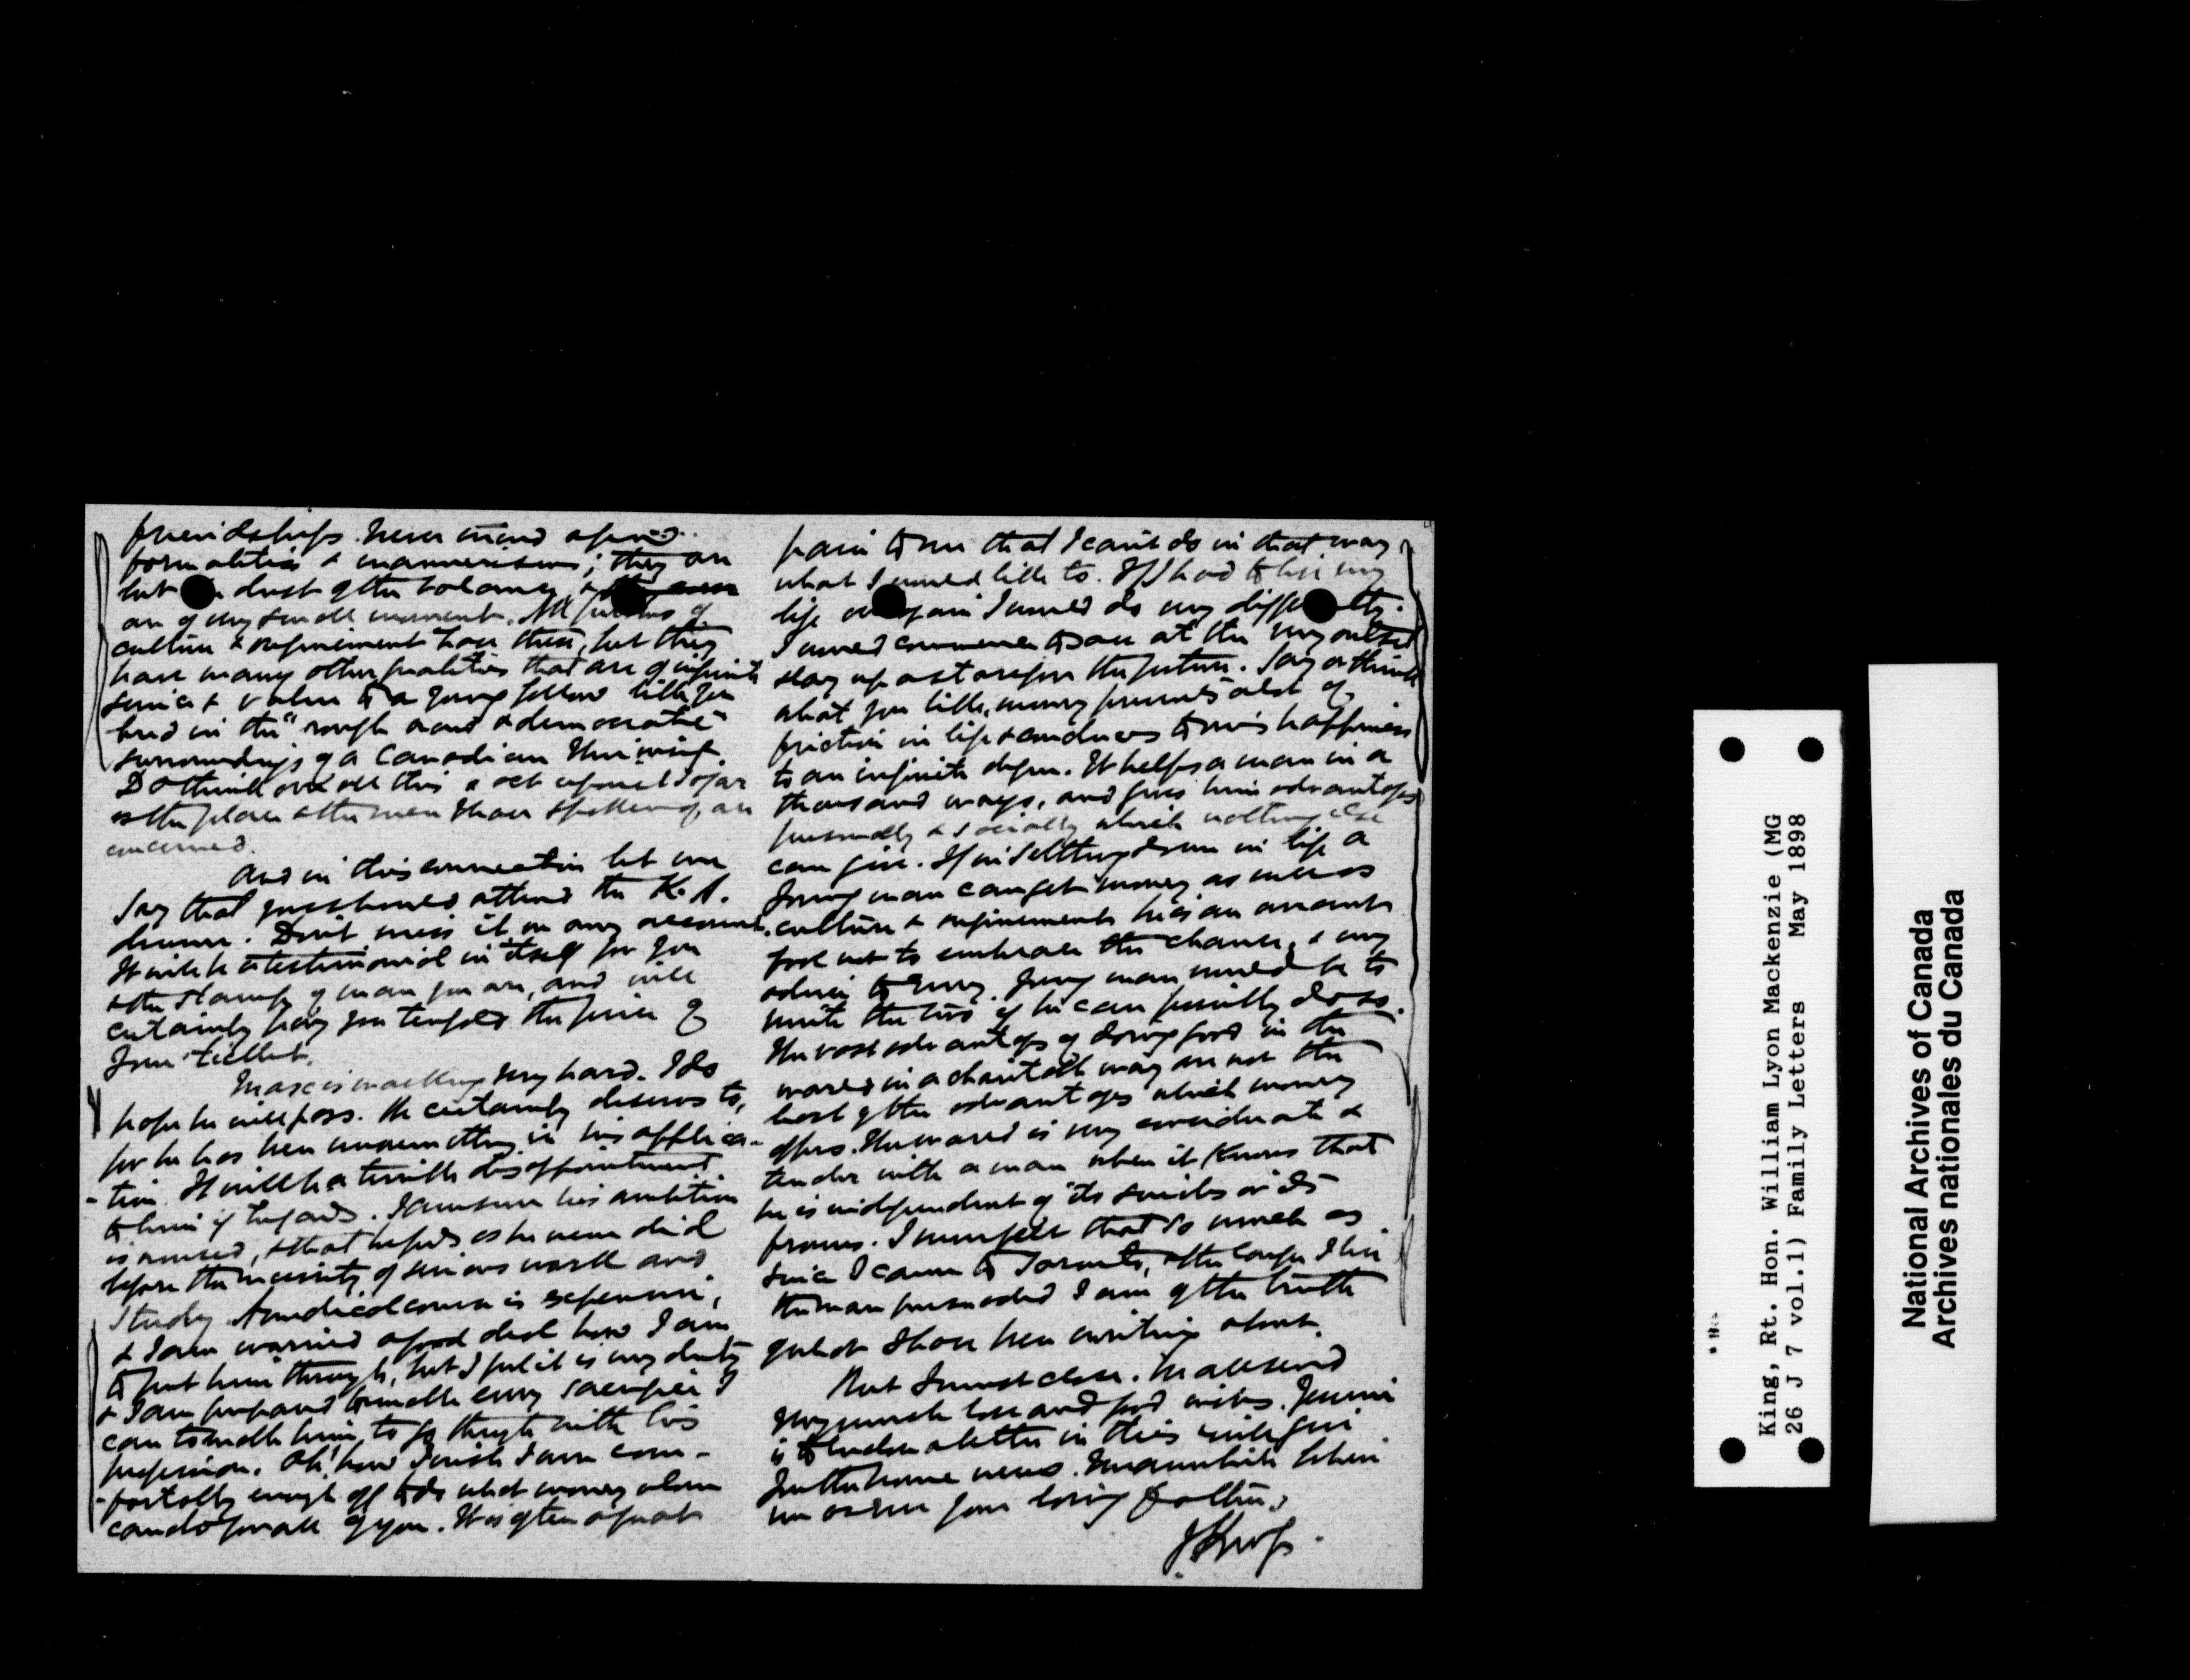 friendships. Never mind a few
formalities & mannerisms; they are
but dust of the balance, &
are of very small moment. All families of
culture & refinement have these, but they
have many other qualities that are of infinite
service & value to a young fellow like you
bred in the "rough and & democratic"
surroundings of a Canadian University.
Do think over all this & act upon it so far
as the place & the men I have spoken of, are
concerned.
And in this connection let me
say that you should attend the K. A.
dinner. Don't miss it on any account.
It will be a testimonial in itself for you
& the stamp of man you are, and will
certainly pay you tenfold the price of
your ticket.
Max is working very hard. I do
hope he will pass. He certainly deserves to,
for he has been unremitting in his applica-
-tion. It will be a terrible disappointment
to him if he fails. I am sure his ambition
is roused, & that he feels as he never did
before the necessity of serious work and
study. A medical course is expensive,
& I am worried a good deal how I am
to put him through, but I feel it is my duty
& I am prepared to make every sacrifice I
can to enable him to go through with his
profession. Oh! how I wish I were com-
-fortably enough off to do what money alone
can do for all of you. It is often a great
pain to me that I can't do in that way
what I would like to. If I had to live my
life over again I would do very differently.
I would commence to save at the very outset
& lay up a store for the future. Say or think
what you like, money prevents a lot of
friction in life & conduces to one's happiness
to an infinite degree. It helps a man in a
thousand ways, and gives him advantages
personally & socially which nothing else
can give. If in settling down in life a
young man can get money as well as
culture & refinement he is an arrant
fool not to embrace the chance, & my
advice to every young man would be to
unite the two if he can possibly do so.
The vast advantages of doing good in the
world in a charitable way are not the
least of the advantages which money
offers. The world is very considerate &
tender with a man when it knows that
he is independent of its smiles or its
frowns. I never felt that so much as
since I came to Toronto, & the longer I live
the more persuaded I am of the truth
of what I have been writing about.
But I must close. All send
very much love and good wishes. Jennie
is to enclose a letter in this & will give
you the home news. Meanwhile believe
me as ever your loving father,
J King.
King, Rt. Hon. William Lyon Mackenzie (MG
26 J 7 vol.1) Family Letters May 1898
National Archives of Canada
Archives nationales du Canada